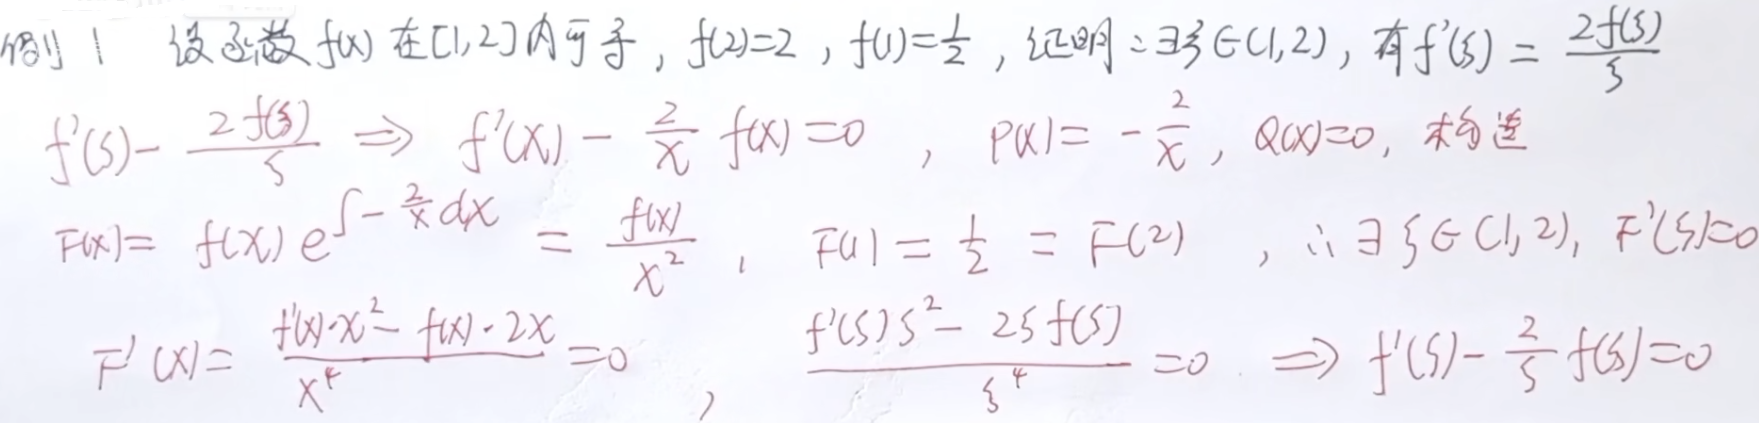 例1 设函数 f(x) 在[1,2]内可导, f(2)=2, f(1)=1/2, 证明:∃ξ∈(1,2), 有f'(ξ) = 2f(ξ)/ξ
f'(ξ) - 2f(ξ)/ξ ⇒ f'(x) - 2/x f(x)=0, P(x)= -2/x, Q(x)=0, 构造
F(x)= f(x)e^{∫-2/x dx} = f(x)/x², F(1)=1/2=F(2), ∴∃ξ∈(1,2), F'(ξ)=0
F'(x)= (f'(x)·x² - f(x)·2x)/x⁴ =0, (f'(ξ)ξ² - 2ξf(ξ))/ξ⁴ =0 ⇒ f'(ξ) - 2/ξ f(ξ)=0